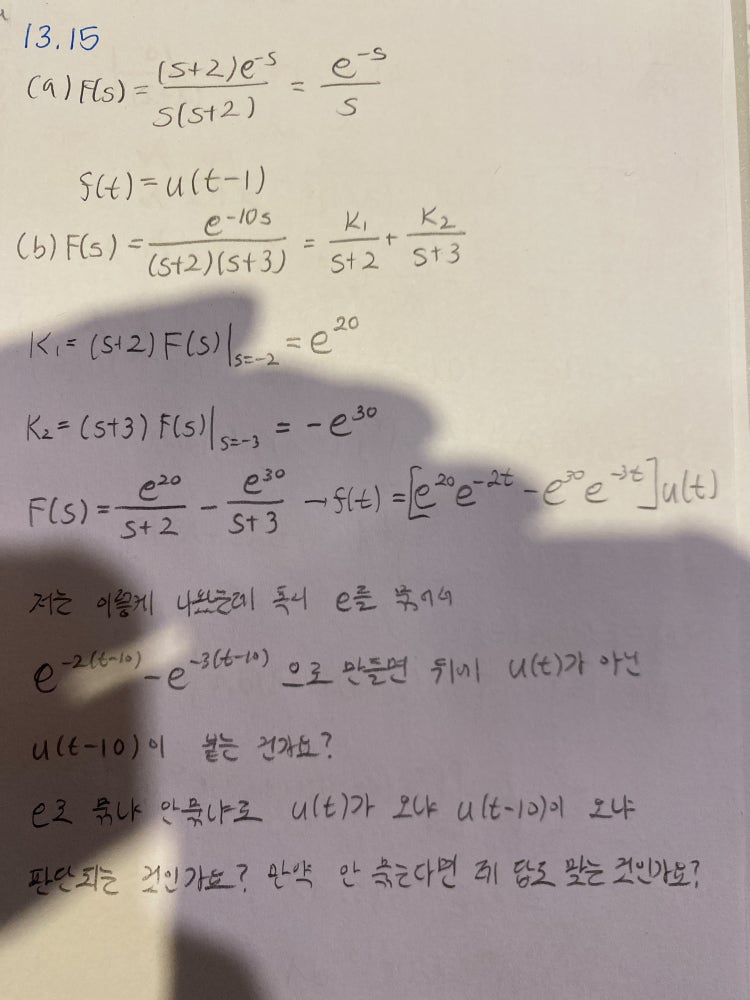 13.15
(a) F(s) = (s+2)e^-s / s(s+2) = e^-s / s
f(t) = u(t-1)
(b) F(s) = e^-10s / (s+2)(s+3) = K₁ / s+2 + K₂ / s+3
K₁ = (s+2) F(s)|s=-2 = e^20
K₂ = (s+3) F(s)|s=-3 = -e^30
F(s) = e^20 / s+2 - e^30 / s+3 → f(t) = [e^20 e^-2t - e^30 e^-3t] u(t)
저는 이렇게 나왔는데 혹시 e를 묶어서
e^-2(t-10) - e^-3(t-10) 으로 만들면 뒤에 u(t)가 아닌
u(t-10)이 붙는 건가요?
e로 묶냐 안묶냐로 u(t)가 오냐 u(t-10)이 오냐
판단되는 것인가요? 만약 안 묶는다면 제 답도 맞는 것인가요?